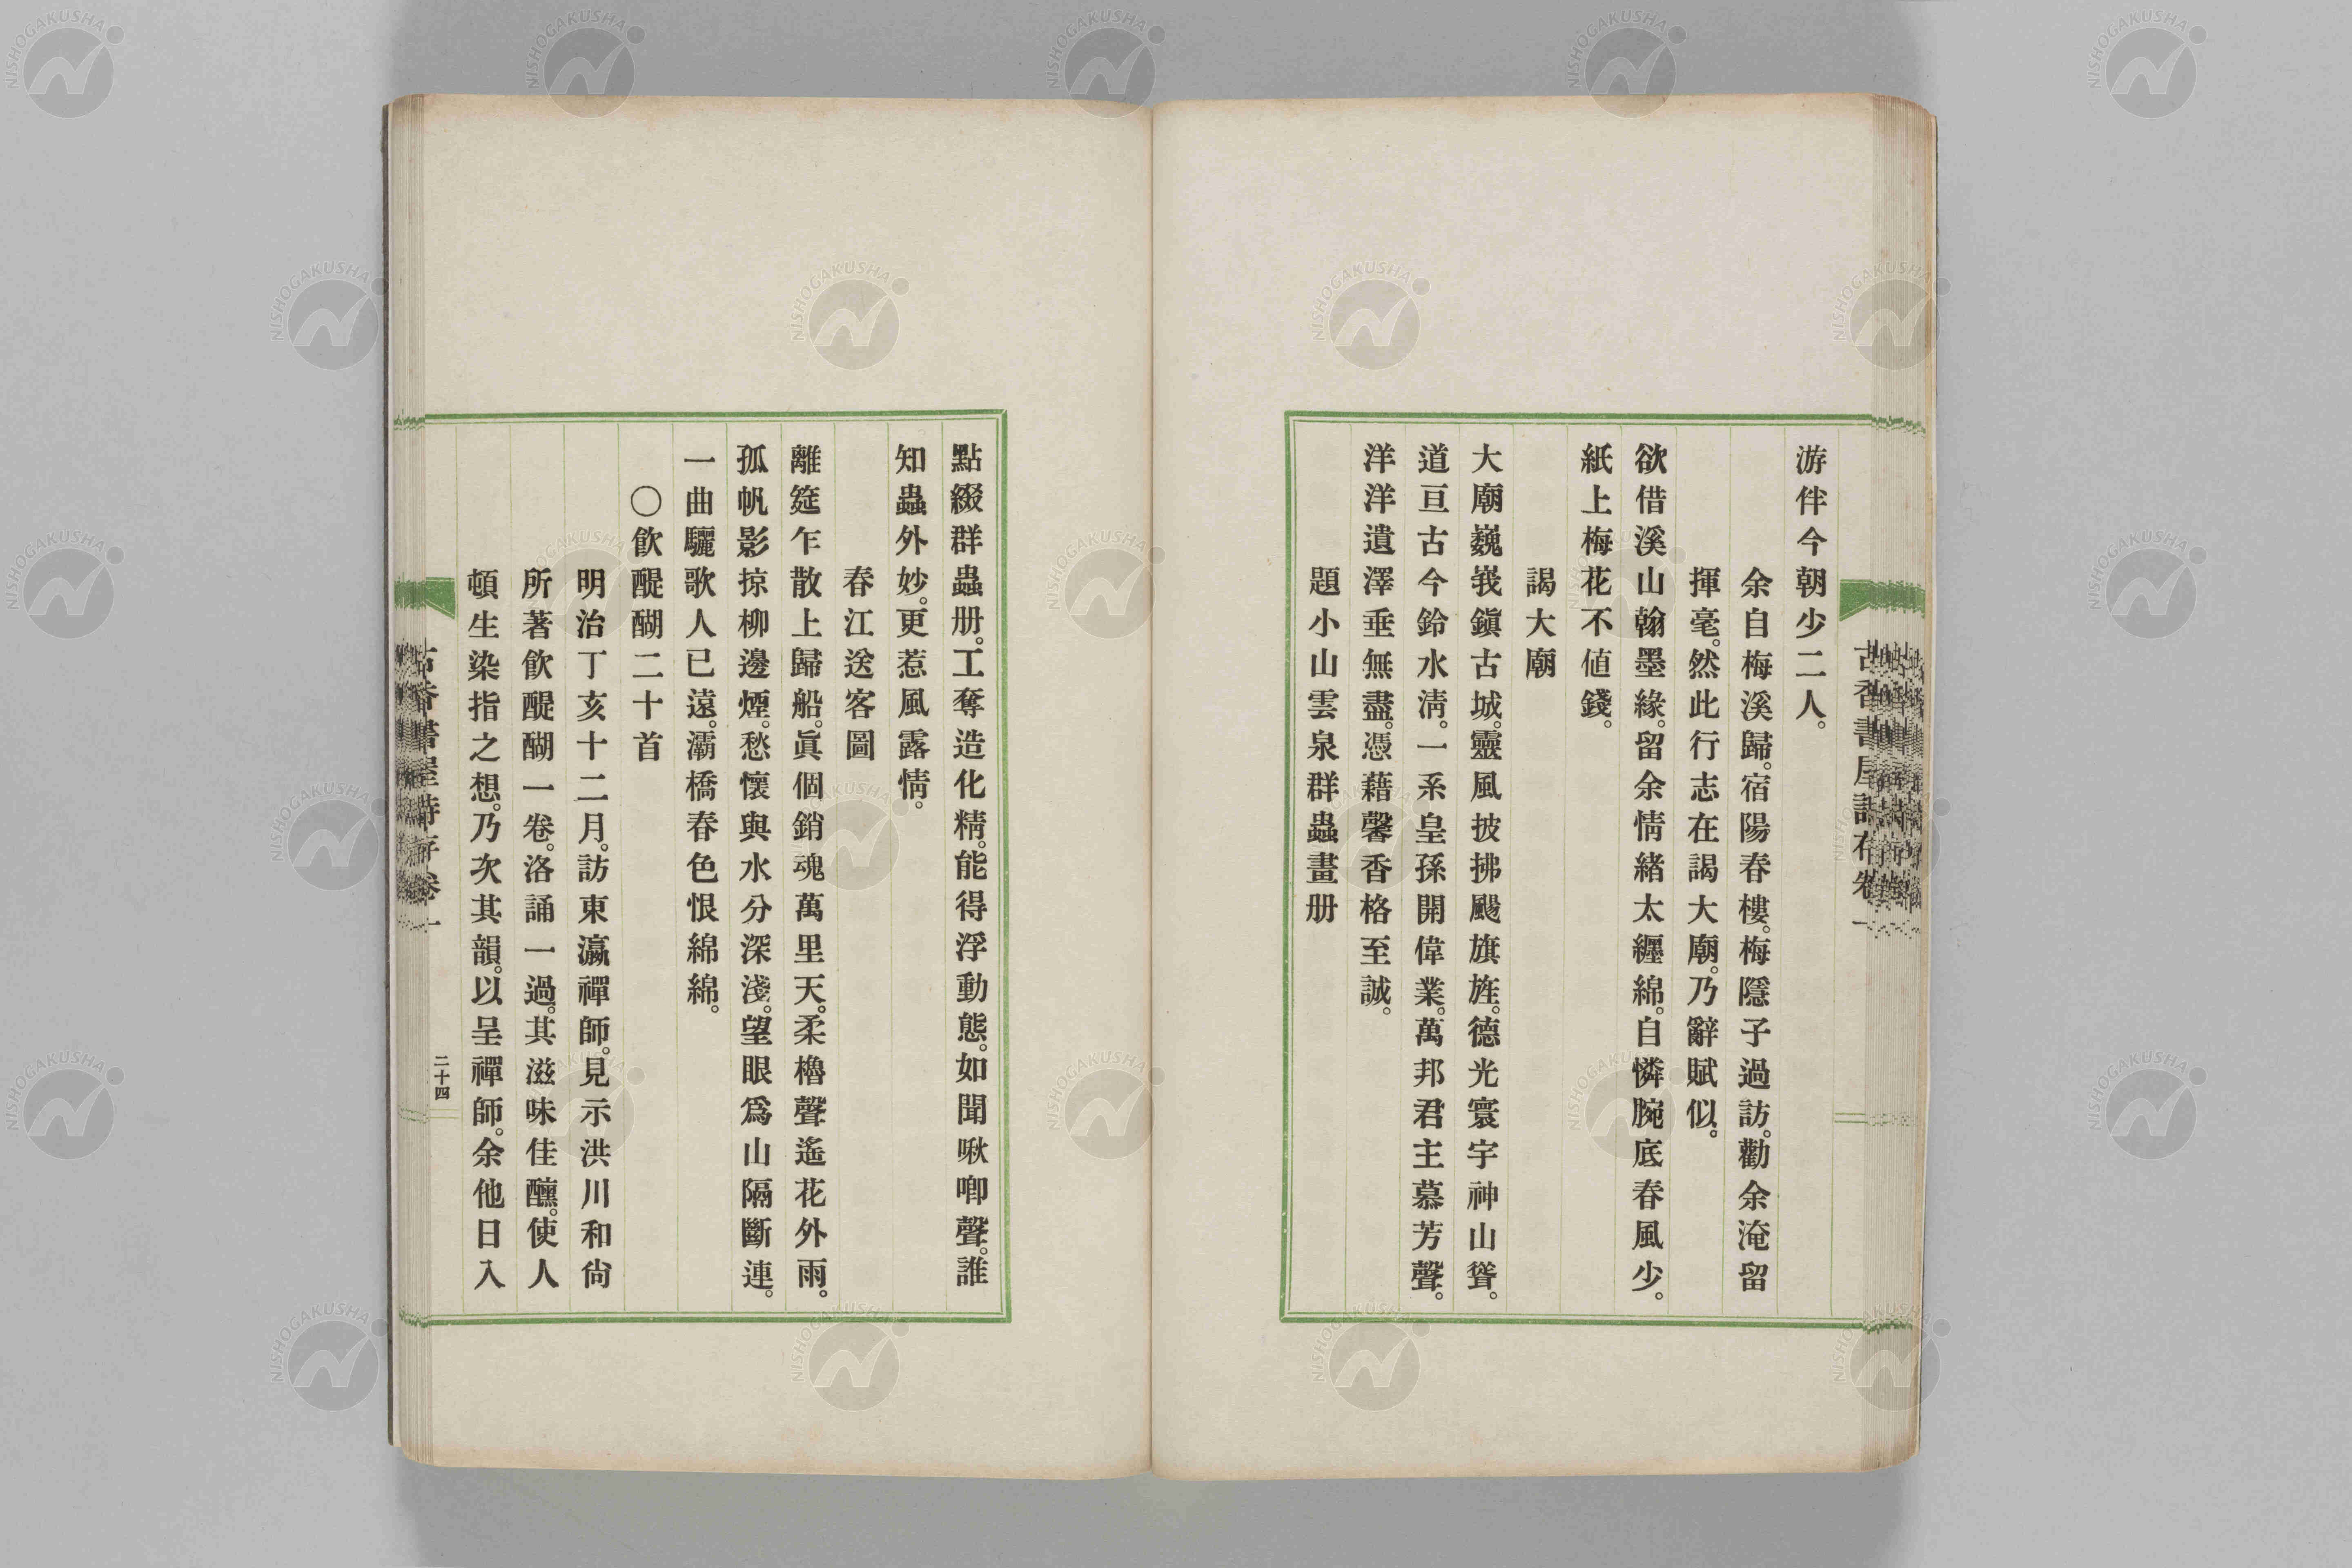 游伴今朝少二人。
余自梅溪歸。宿陽春樓。梅隱子過訪。勸余淹留
揮毫。然此行志在謁大廟。乃辭賦似。
欲借溪山翰墨緣。留余情緒太纏綿。自憐腕底春風少。
紙上梅花不値錢。
謁大廟
大廟巍峩鎭古城。靈風披拂颺旗旌。德光寰宇神山聳。
道亘古今鈴水淸。一系皇孫開偉業。萬邦君主慕芳聲。
洋洋遺澤垂無盡。憑藉馨香格至誠。
題小山雲泉群蟲畫册
點綴群蟲册。工奪造化精。能得浮動態。如聞啾喞聲。誰
知蟲外妙。更惹風露情。
春江送客圖
離筵乍散上歸船。眞個銷魂萬里天。柔櫓聲遙花外雨。
孤帆影掠柳邊煙。愁懷與水分深淺。望眼爲山隔斷連。
一曲驪歌人已遠。灞橋春色恨綿綿。
〇飮醍醐二十首
明治丁亥十二月。訪東瀛禪師。見示洪川和尙
所著飮醍醐一卷。洛誦一過。其滋味佳醺。使人
頓生染指之想。乃次其韻。以呈禪師。余他日入
古香書屋詩存卷一
二十四
NISHOGAKUSHA